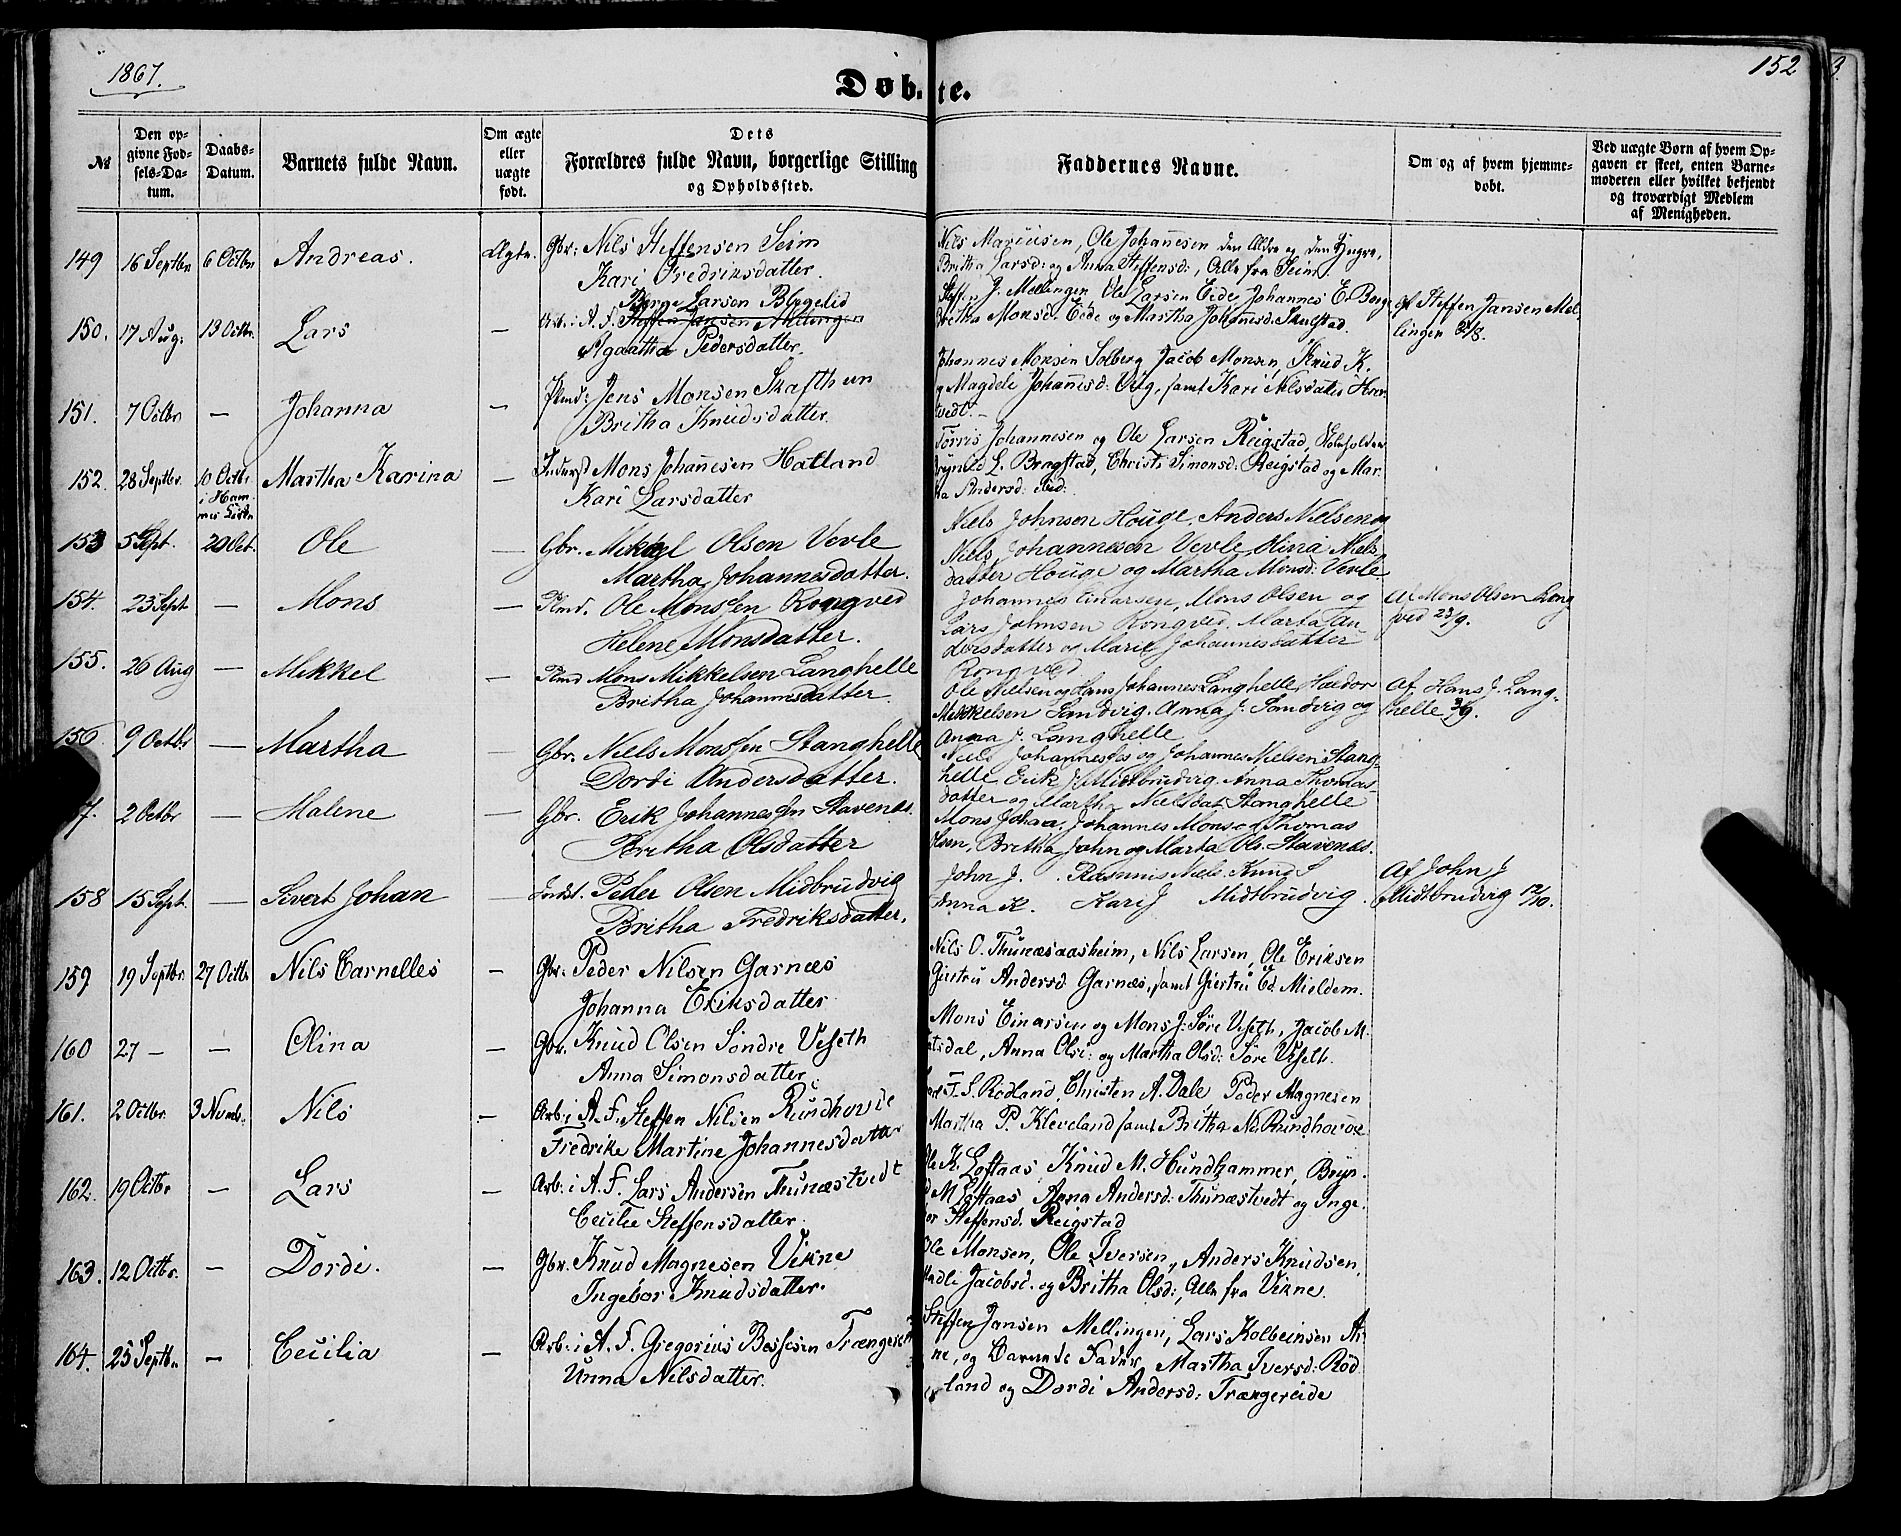 1867.
152
Døbte.
№
Den opgivne Fødsels-Datum.
Daabs-Datum.
Barnets fulde Navn.
Om ægte eller uægte født.
Dets Forældres fulde Navn, borgerlige Stilling og Opholdssted.
Faddernes Navne.
Om og af hvem hjemmedøbt.
Ved uægte Børn af hvem Opgaven er skeet, enten Barnemoderen eller hvilket bekjendt og troværdigt Medlem af Menigheden.
149 16 Septbr 6 Octbr Andreas. Ægte. Gbr: Nils Steffensen Seim
Kari Fredriksdatter.
Nils Mariusen, Ole Johanesen den Ældre og den Yngre,
Britha Larsd: og Anna Steffensd:, Alle fra Seim.
150. 17 Aug: 13 Octbr. Lars — Børge Larsen Blygelid
Arb: i A. F. Steffen Jansen Mellingen
Agaatha Pedersdatter.
J. Mellingen, Ole Larsen Eide, Johannes E. Berge,
Britha Monsd. Eide og Martha Johanesd: Skulstad.
Af Steffen Jansen Mel-
lingen
151. 7 Octbr — Johanna — Plmd: Jens Monsen Skafthun
Britha Knudsdatter.
Johannes Monsen Solberg, Jacob Monsen, Knud K.
og Magdeli Johanesd: Vig, samt Kari Nilsdatter
tvedt. —
152. 28 Septbr. 10 Octbr i Ham- Martha Karina — Inderst Mons Johanesen Hatland
Kari Larsdatter
Tørris Johannesen og Ole Larsen Reigstad,
Brynild L. Bragstad, Christi Simonsd: Reigstad og Mar-
tha Andersd: ibid:
153 5 Sept. 20 Oct. Ole — Gbr. Mikkel Olsen Vevle
Martha Johannesdatter.
Niels Johnsen Houge, Anders Nielsen og
Niels Johannesen Vevle, Olina Niels-
datter Houge og Martha Monsd: Vevle
154. 23 Sept — Mons — Plmd. Ole Monssen Rongved
Helene Monsdatter.
Johannes Einarsen, Mons Olsen og
Lars Johnsen Rongved, Marta An-
dersdatter og Marie Johannesdatter
Rongved
Af Mons Olsen Rong-
ved 23/9.
155. 26 Aug — Mikkel — Plmd Mons Mikkelsen Langhelle
Britha Johannesdatter
Ole Nielsen og Hans Johannes Langhelle, Haldor
Mikkelsen Sandvig, Anna J. Sandvig og
Anna J. Langhelle
Af Hans J. Lang-
helle 3/9.
156. 9 Octbr — Martha Gbr. Niels Monssen Stanghelle
Dordi Andersdatter.
Niels Johannesen og Johannes Nielsen Stang-
helle, Erik J. Midtbrudvig, Anna Thomas-
datter og Martha Nielsdat Stanghelle
7. 2 Octbr — Malene — Gbr. Erik Johannessen Stavenes.
Britha Olsdatter
Mons Johan. Johannes Mons og Thomas
Olsen, Britha John og Marta Ols. Stavenes.
158 15 Sept. — Sivert Johan — Indst. Peder Olsen Midbrudvig
Britha Fredriksdatter.
John J. Rasmus Niels Knud S
Anna K. Kari J Midtbrudvig.
Af John J
Midtbrudvig 12/10.
159 19 Septbr. 27 Octb. Nils Carnelles — Gbr: Peder Nilsen Garnes
Johanna Eriksdatter
Nils O. Thunæsaasheim, Nils Larsen, Ole Eriksen
Giertru Andersd. Garnæs, samt Giertru Ed. Mieldem.
160 27 — — Olina — Gbr. Knud Olsen Søndre Veseth
Anna Simonsdatter
Mons Einarsen og Mons J: Søre Veseth, Jacob M.
dal, Anna Olsd: og Martha Olsd: Søre Veseth.
161. 2 Octbr. 3 Novmb. Nils — Arb: i A. F. Steffen Nilsen Rundhovde
Fredrike Martine Johannesdatter
S. Rødland, Christen A. Dale, Peder Magnesen
Martha P. Kleveland samt Britha Nd: Rundhovde
162. 19 Octbr — Lars — Arb: i A. F. Lars Andersen Tunæstvedt
Cecilie Steffensdatter.
Ole K. Loftaas, Knud M. Hundhammer, Bryn-
d M Loftaas Anna Andersd: Thunæstvedt og Inge-
bor Steffensd: Reigstad
163. 12 Octbr. — Dordi. — Gbr. Knud Magnesen Vikne
Ingebor Knudsdatter.
Ole Monsen, Ole Iversen, Anders Knudsen,
Jacobsd. og Britha Olsd:, Alle fra Vikne.
164. 25 Septbr — Cecilia — Arb: i A. F. Gregorius Bessesen Trængereid
Unna Nilsdatter.
Steffen Jansen Mellingen, Lars Kolbeinsen Ar-
ne, og Barnets Fader, Martha Iversd: Rød-
land og Dordi Andersd: Trængereide